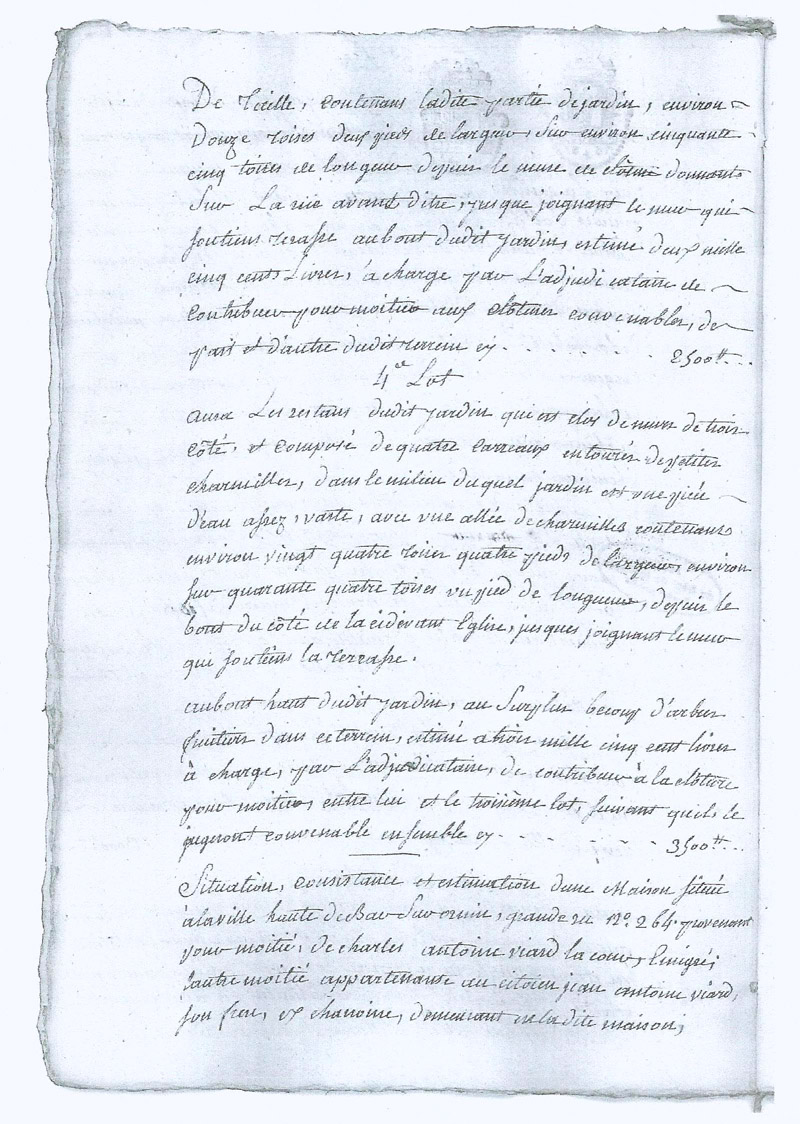 De Treille, contenans ladite partie de jardin, environ
Douze toises deux pieds de largeur, sur environ cinquante
cinq toises de longeur depuis le mure de clôture donnant
sur La rue avant ditte, jusque joignant le mur qui
soutiens terasse au bout dudit jardin, estimé deux mille
cinq cents Livres, à charge par L'adjudicataire de
contribuer pour moitier aux clôtures convenables, de
part et d'autre dudit terrein cy . . . . . 2500tt...
4e Lot
aura Les restans dudit jardin qui est clos de murs de trois
côté, et composé de quatre carreaux entourés de petites
charmilles, dans le milieu duquel jardin est une pièce
d'eau assez vaste, avec une allée de charmilles contenans
environ vingt quatre toises quatre pieds de largeur, environ
sur quarante quatre toises un pied de longueur, depuis le
bout du côté de la cidevant Eglise, jusques joignant le mur
qui soutiens la Terrasse.
au bout haut dudit jardin, au Surplus becoup d'arbres
fruitiers dans ce terrein, estimé a trois mille cinq cent livres
à charge, par L'adjudicataire, de contribuer à la clôture
pour moitier, entre lui et le troisième lot, suivant qu'ils le
jugeront convenable ensemble cy - . . . . . 3500tt...
Situation, consistance et estimation d'une Maison située
à la ville haute de Bar Sur ornin, grande rue No. 264. provenant
pour moitié, de charles antoine viard la cour, Emigré;
l'autre moitié appartenante au citoien jean antoine viard,
son frere, ex chanoine, demeurant en la dite maison,